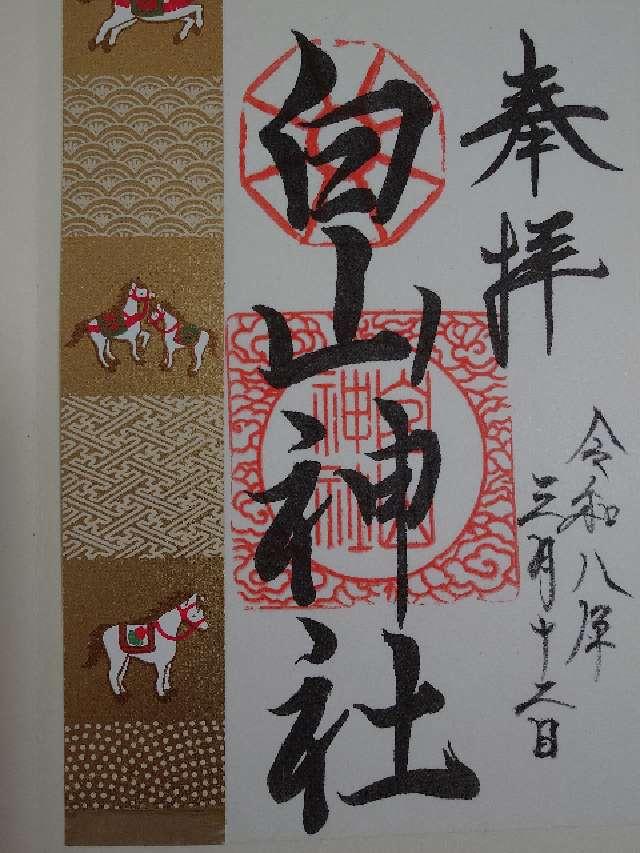 奉拝
白山神社
白山神社
令和八年
三月十二日